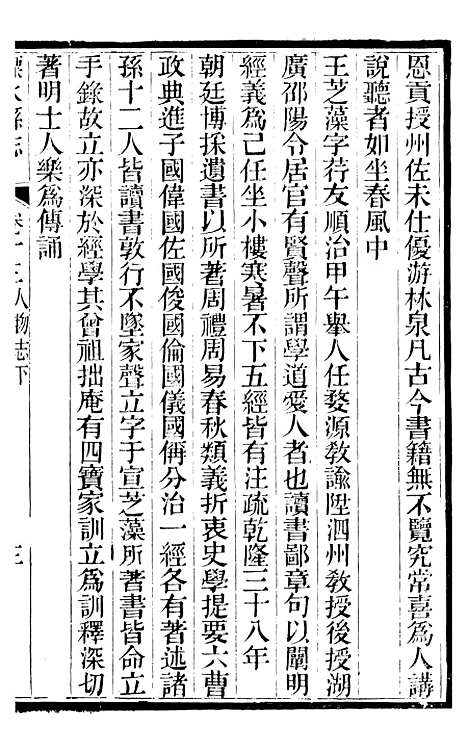 恩貢授州佐未仕優游林泉凡古今書籍無不覽究常喜爲人講
說聽者如坐春風中
王芝藻字荇友順治甲午舉人任婺源敎諭陞泗州敎授後授湖
廣邵陽令居官有賢聲所謂學道愛人者也讀書鄙章句以闡明
經義爲己任坐小樓寒暑不下五經皆有注疏乾隆三十八年
朝廷博採遺書以所著周禮周易春秋類義折衷史學提要六曹
政典進子國偉國佐國俊國倫國儀國稱分治一經各有著述諸
孫十二人皆讀書敦行不墜家聲立字于宣芝藻所著書皆命立
手錄故立亦深於經學其曾祖拙庵有四寶家訓立爲訓釋深切
著明士人樂爲傳誦
溧水縣志
卷十三人物志下
三